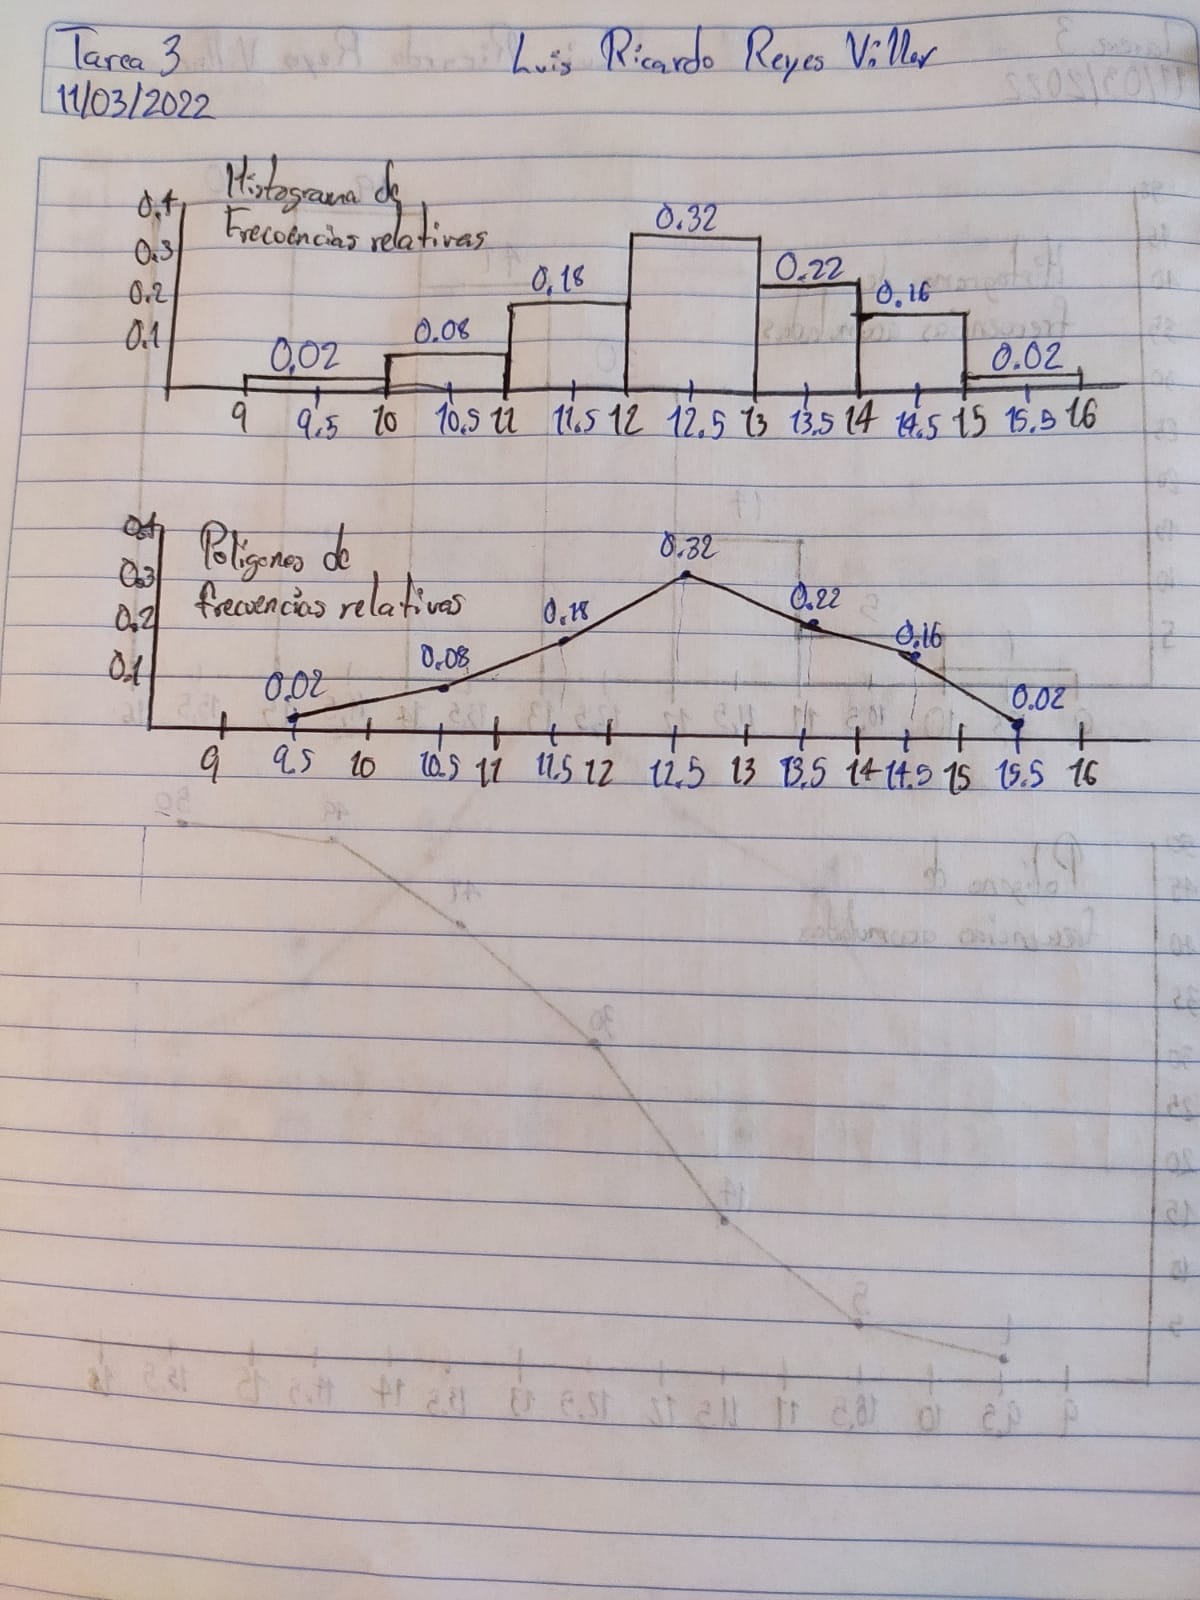 Tarea 3 Luis Ricardo Reyes Villar
11/03/2022
Histograma de
Frecuencias relativas
0.4
0.3
0.2
0.1
0.02 0.08 0.18 0.32 0.22 0.16 0.02
9 9.5 10 10.5 11 11.5 12 12.5 13 13.5 14 14.5 15 15.5 16
Poligonos de
frecuencias relativas
0.4
0.3
0.2
0.1
0.02 0.08 0.18 0.32 0.22 0.16 0.02
9 9.5 10 10.5 11 11.5 12 12.5 13 13.5 14 14.5 15 15.5 16